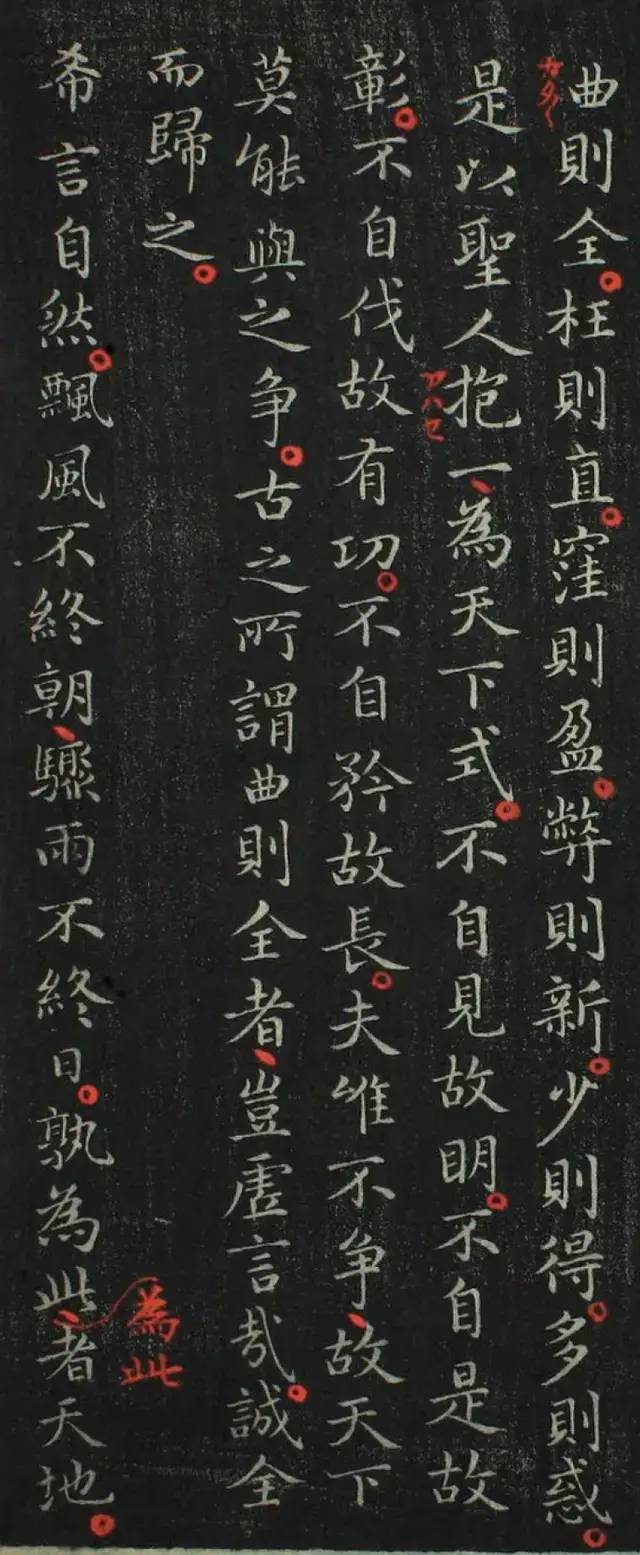 曲則全。枉則直。窪則盈。弊則新。少則得。多則惑。
是以聖人抱一、為天下式。不自見故明。不自是故
彰。不自伐故有功。不自矜故長。夫唯不争、故天下
莫能與之争。古之所謂曲則全者、豈虛言哉。誠全
而歸之。
希言自然。飄風不終朝、驟雨不終日。孰為此、者天地。
為此